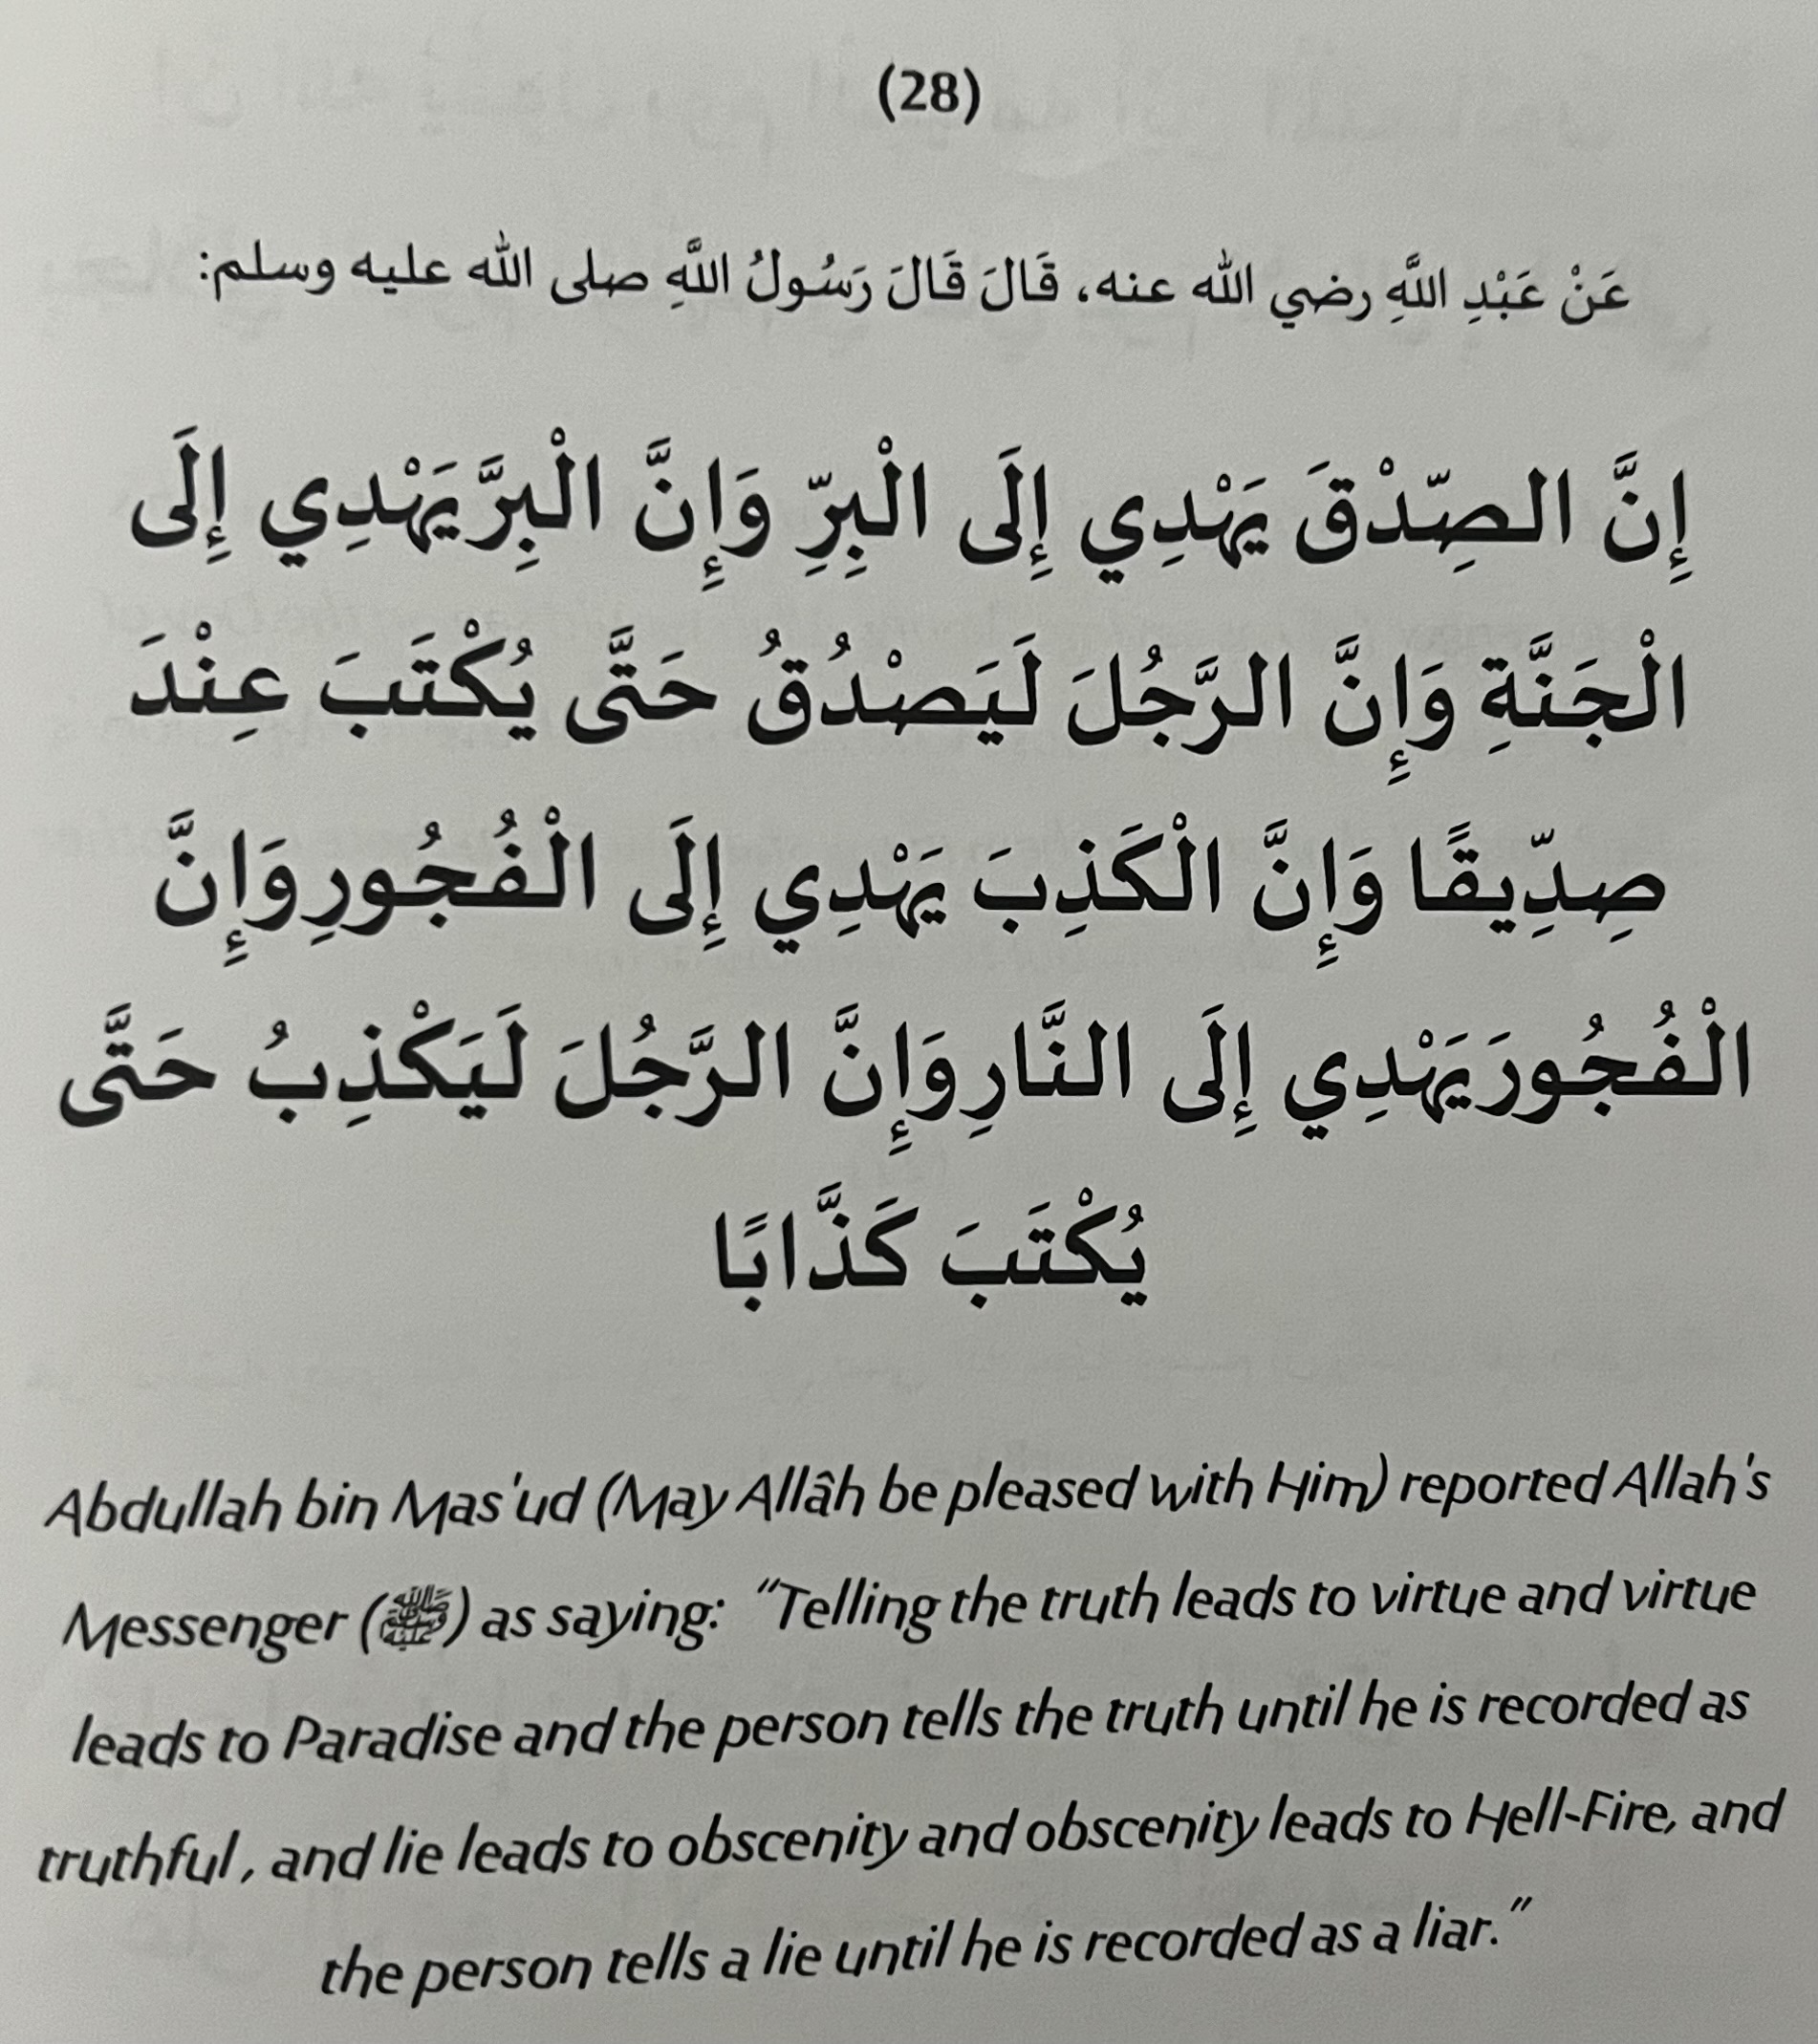 (28)
عَنْ عَبْدِ اللَّهِ رضي الله عنه، قَالَ قَالَ رَسُولُ اللَّهِ صلى الله عليه وسلم:
إِنَّ الصِّدْقَ يَهْدِي إِلَى الْبِرِّ وَإِنَّ الْبِرَّ يَهْدِي إِلَى
الْجَنَّةِ وَإِنَّ الرَّجُلَ لَيَصْدُقُ حَتَّى يُكْتَبَ عِنْدَ
صِدِّيقًا وَإِنَّ الْكَذِبَ يَهْدِي إِلَى الْفُجُورِ وَإِنَّ
الْفُجُورَ يَهْدِي إِلَى النَّارِ وَإِنَّ الرَّجُلَ لَيَكْذِبُ حَتَّى
يُكْتَبَ كَذَّابًا
Abdullah bin Mas'ud (May Allâh be pleased with Him) reported Allah's
Messenger (ﷺ) as saying: "Telling the truth leads to virtue and virtue
leads to Paradise and the person tells the truth until he is recorded as
truthful, and lie leads to obscenity and obscenity leads to Hell-Fire, and
the person tells a lie until he is recorded as a liar."